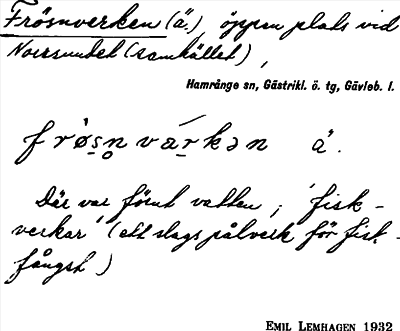 Frösnverken (ä.), öppen plats vid
Norrsundet (samhället),
Hamrånge sn, Gästrikl. ö. tg, Gävleb. l.
frø̀s̱n̥várkən ä.
Där var förut vatten; 'fisk-
verkar' (ett slags pålverk för fisk-
fångst)
EMIL LEMHAGEN 1932